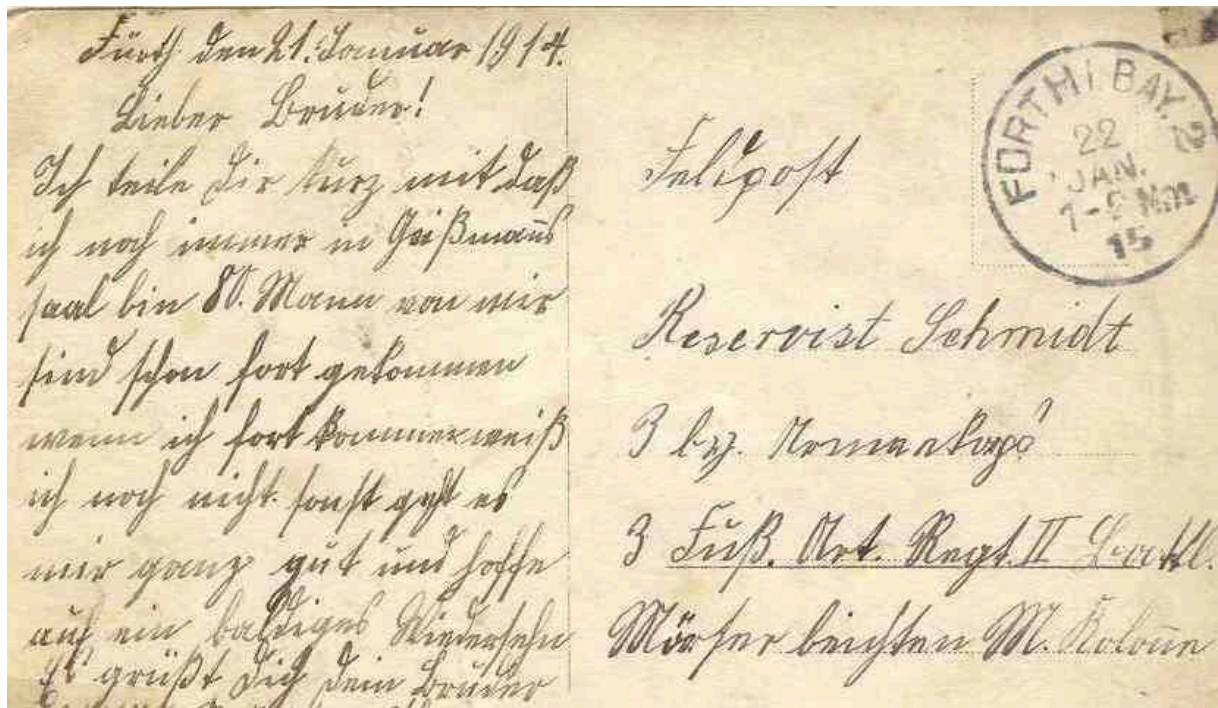 Fürth den 21. Januar 1914.
Lieber Bruder!
Ich teile dir kurz mit daß
ich noch immer in Geißmanns
saal bin 80. Mann von mir
sind schon fort gekommen
wenn ich fort komme weiß
ich noch nicht. sonst geht es
mir ganz gut und hoffe
auf ein baldiges Wiedersehn
Es grüßt dich dein Bruder
FÜRTH I. BAY. 2
22
JAN.
Nm.
15
Feldpost
Reservist Schmidt
3 by. Armeekorps
3 Fuß. Art. Regt. II Battl.
Mörser leichten M. Kolonne